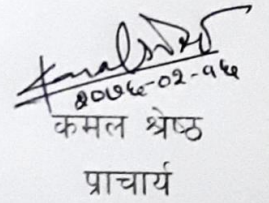 २०७६-०२-१६
कमल श्रेष्ठ
प्राचार्य